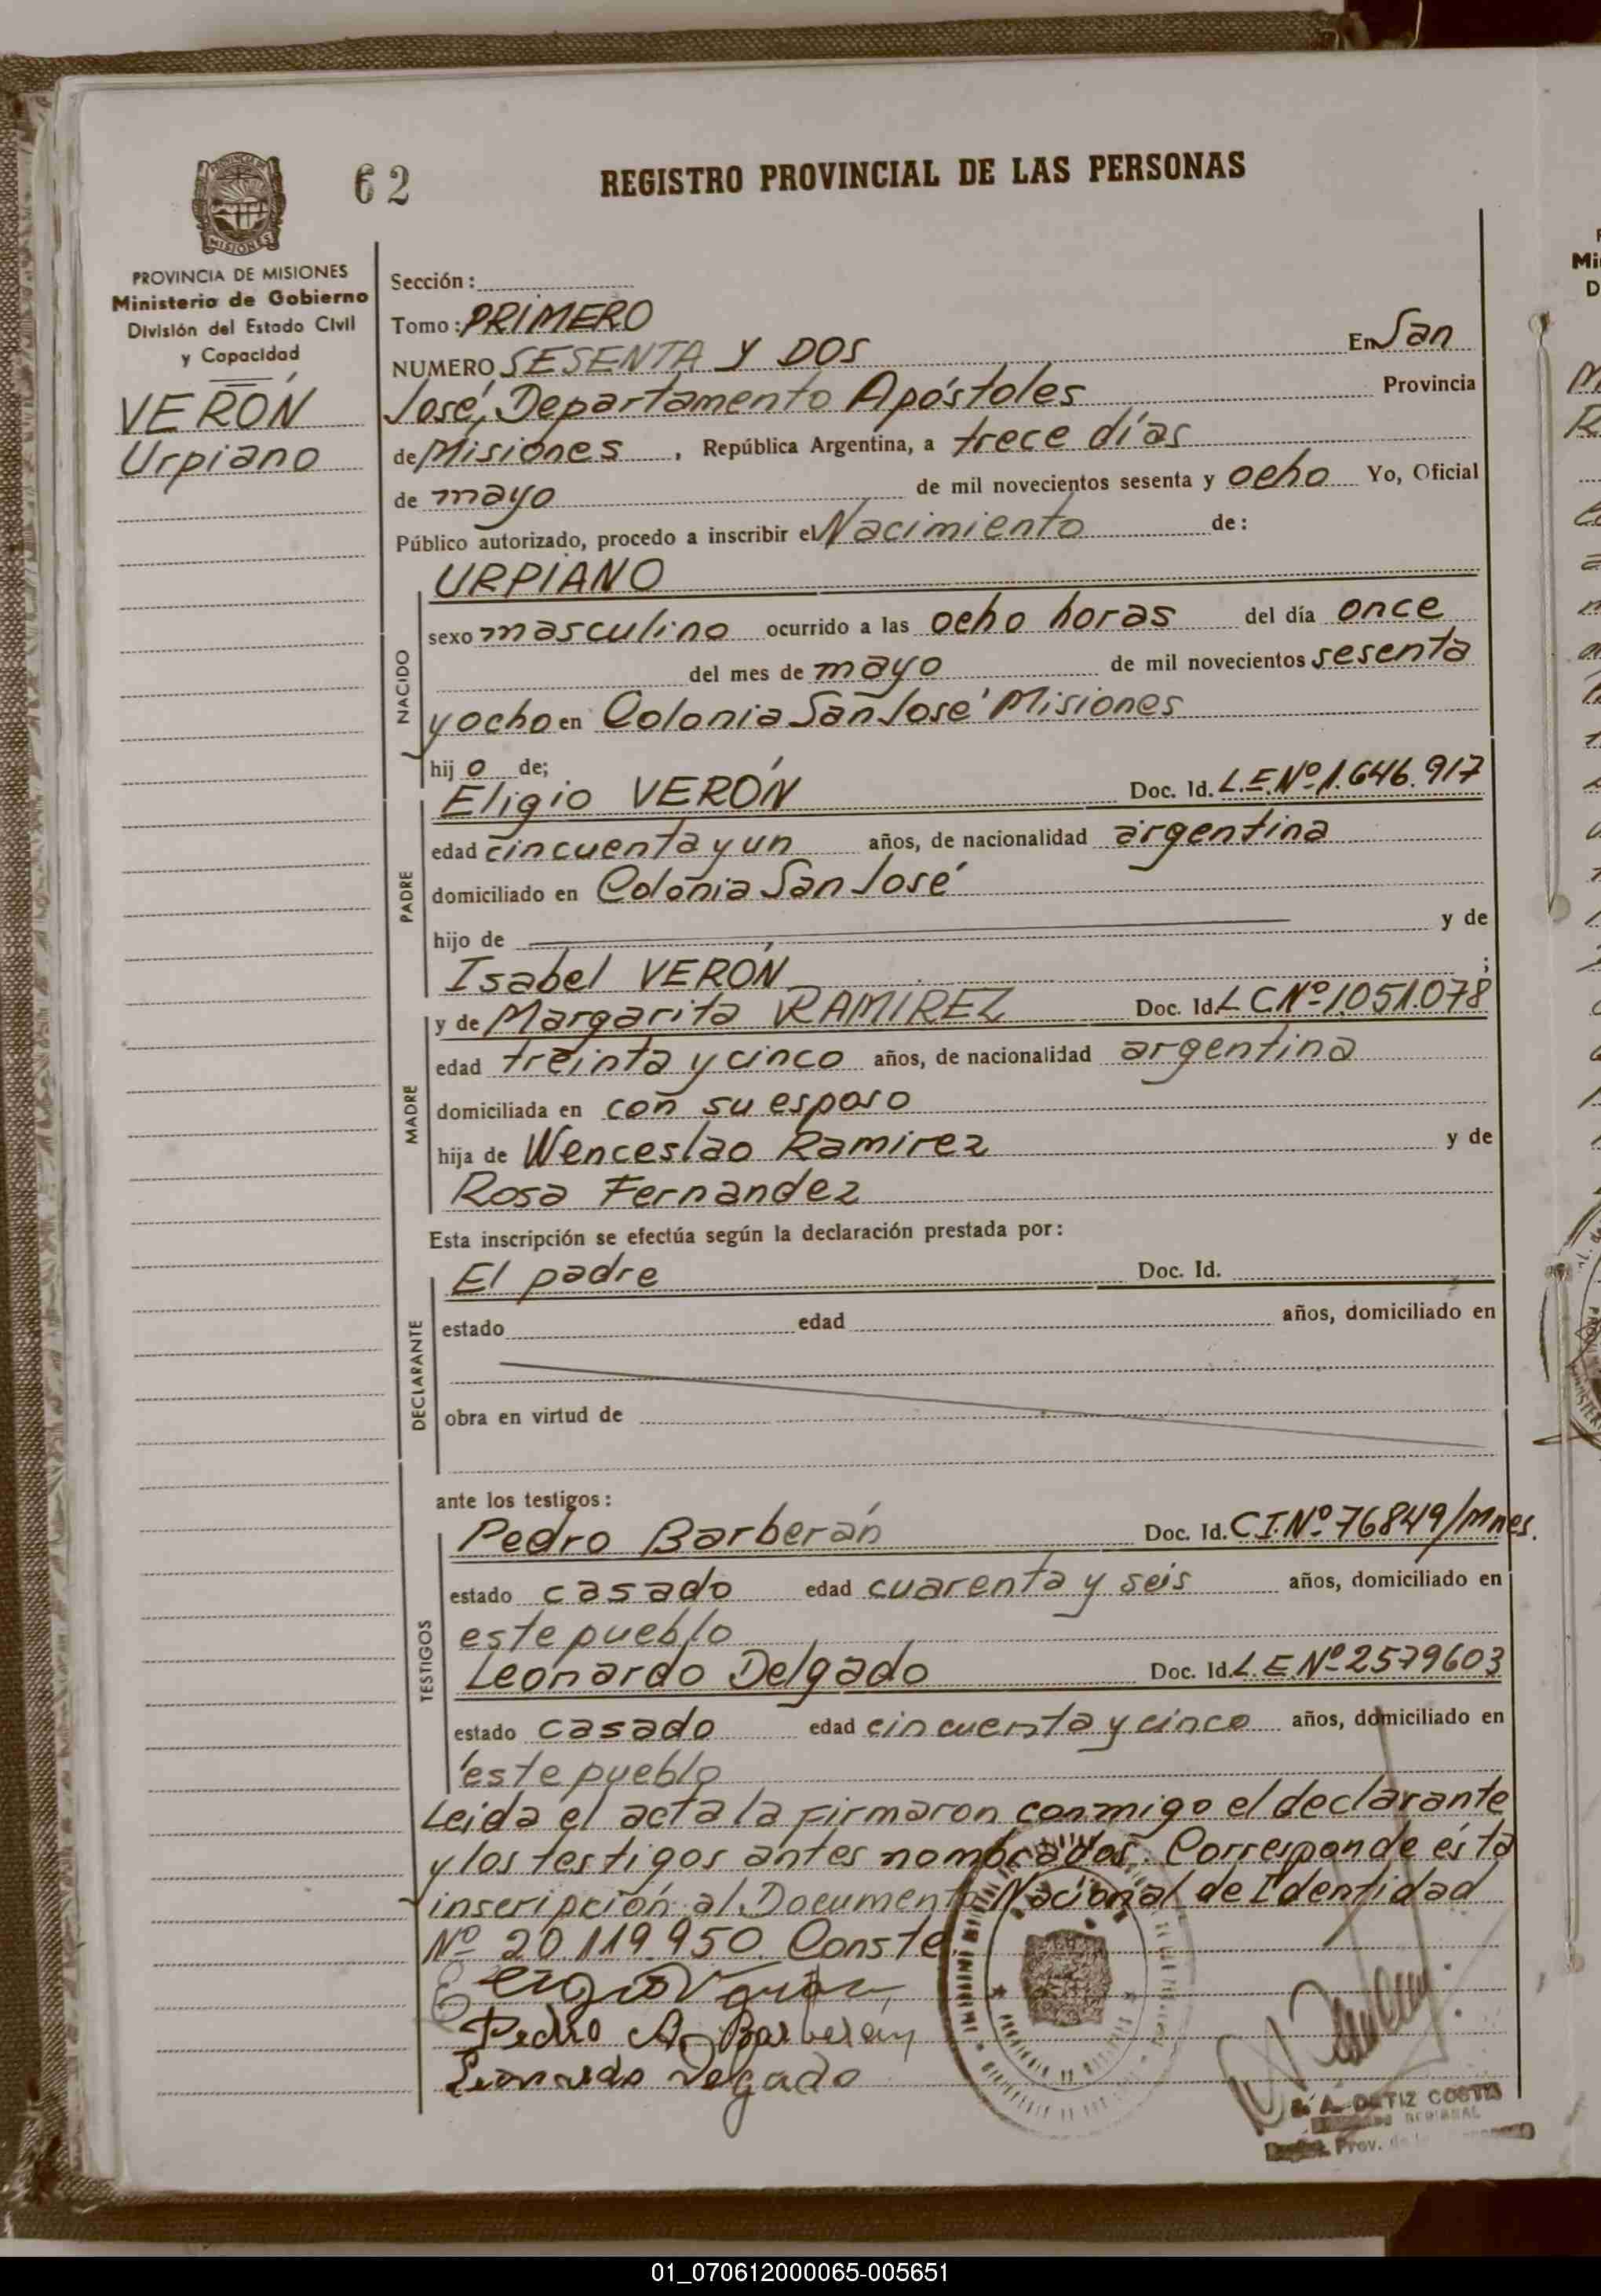 62
REGISTRO PROVINCIAL DE LAS PERSONAS
PROVINCIA DE MISIONES
Ministerio de Gobierno
División del Estado Civil
y Capacidad
VERÓN
Urpiano
Sección:
Tomo: PRIMERO
NUMERO SESENTA Y DOS En San
José, Departamento Apóstoles Provincia
de Misiones, República Argentina, a trece días
de mayo de mil novecientos sesenta y ocho Yo, Oficial
Público autorizado, procedo a inscribir el Nacimiento de:
URPIANO
NACIDO
sexo masculino ocurrido a las ocho horas del día once
del mes de mayo de mil novecientos sesenta
y ocho en Colonia San José Misiones
hijo de;
PADRE
Eligio VERÓN Doc. Id. L.E.Nº 1.646.917
edad cincuenta y un años, de nacionalidad argentina
domiciliado en Colonia San José
hijo de y de
Isabel VERÓN ;
MADRE
y de Margarita RAMIREZ Doc. Id. L C.Nº 1.051.078
edad treinta y cinco años, de nacionalidad argentina
domiciliada en con su esposo
hija de Wenceslao Ramirez y de
Rosa Fernandez
Esta inscripción se efectúa según la declaración prestada por:
DECLARANTE
El padre Doc. Id.
estado edad años, domiciliado en
obra en virtud de
ante los testigos:
TESTIGOS
Pedro Barberán Doc. Id. C.I.Nº 76849/Mnes.
estado casado edad cuarenta y seis años, domiciliado en
este pueblo
Leonardo Delgado Doc. Id. L.E.Nº 2579603
estado casado edad cincuenta y cinco años, domiciliado en
este pueblo
Leida el acta la firmaron conmigo el declarante
y los testigos antes nombrados. Corresponde ésta
inscripción al Documento Nacional de Identidad
Nº 20.119.950. Conste.
Pedro A. Barberán
Leonardo Delgado
A. ORTIZ COSTA
Prov. de
01_070612000065-005651